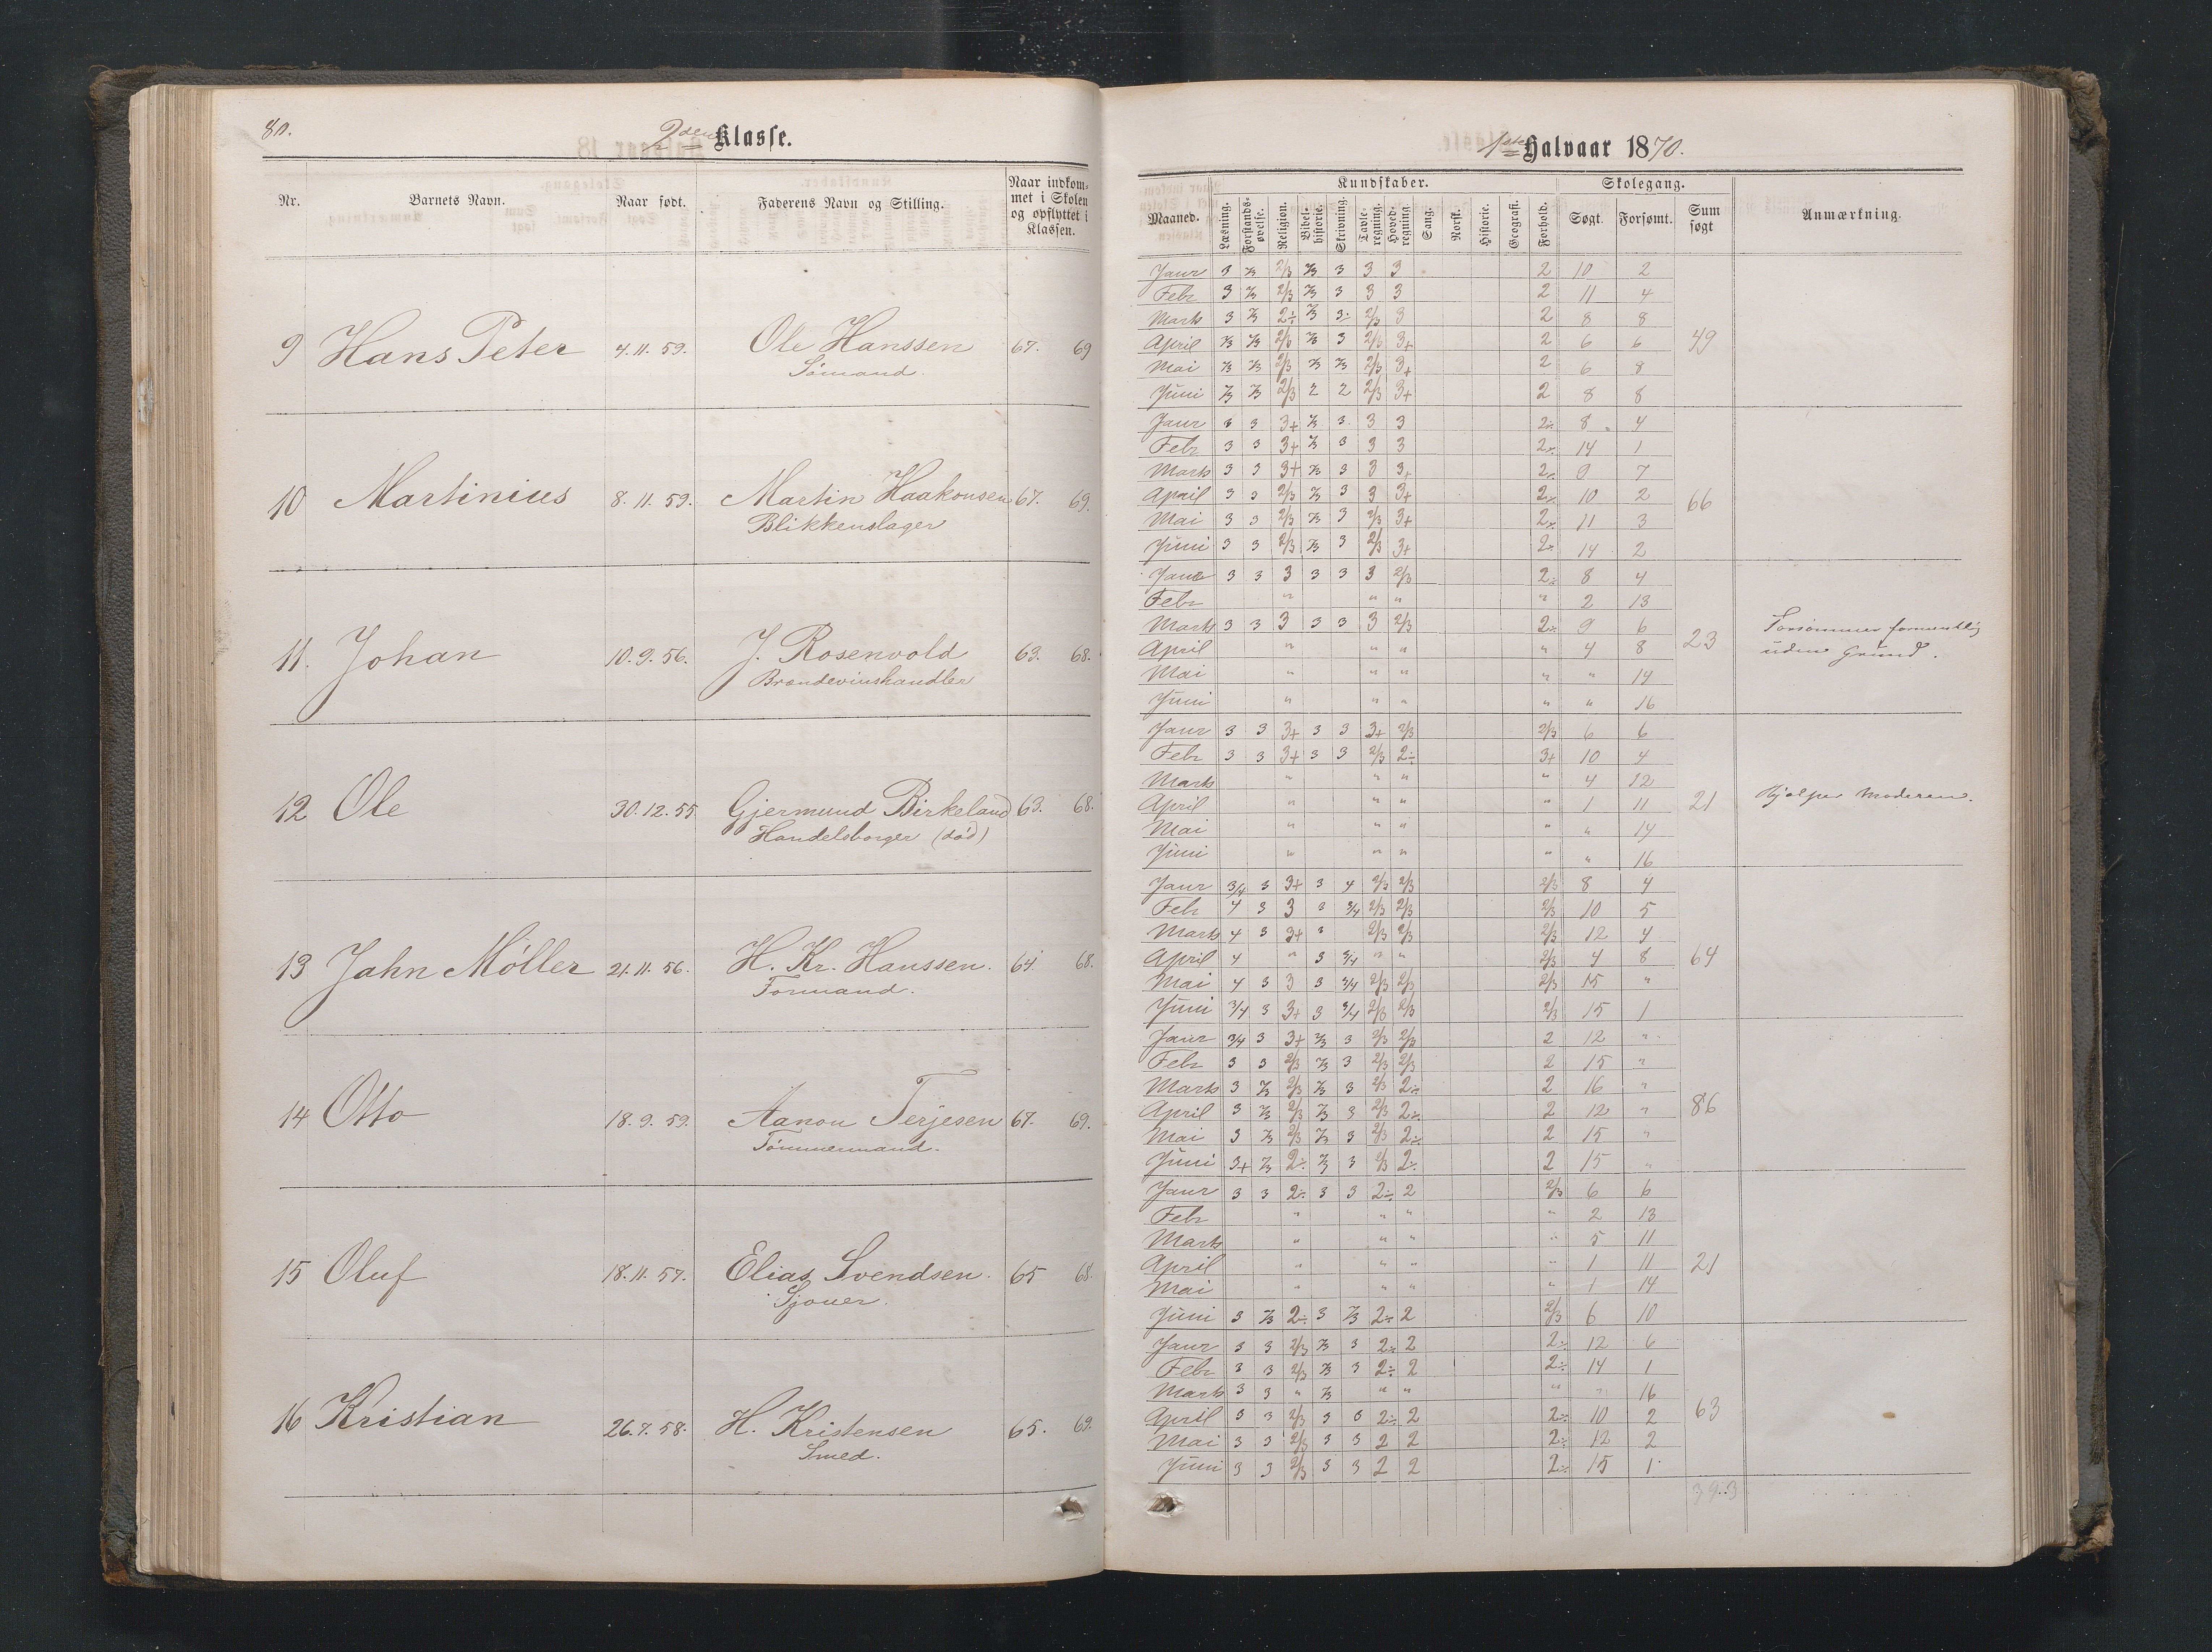 80.
2den Klasse.
Nr. Barnets Navn. Naar født. Faderens Navn og Stilling. Naar indkommet i Skolen og opflyttet i Klassen.
9 Hans Peter 4.11.59. Ole Hanssen 67. 69
Sømand.
10 Martinius 8.11.59. Martin Haakonsen 67. 69.
Blikkenslager
11. Johan 10.9.56. J. Rosenvold 63. 68.
Brændevinshandler
12 Ole 30.12.55 Gjermund Birkeland 63. 68.
Handelsborger (død)
13 Jahn Møller 21.11.56. H. Kr. Hanssen. 64. 68.
Formand.
14 Otto 18.9.59. Aanon Terjesen 67. 69.
Tømmermand.
15 Oluf 18.11.57. Elias Svendsen. 65 68.
Sjouer.
16 Kristian 26.7.58. H. Kristensen 65. 69.
Smed.
1ste Halvaar 1870.
Kundskaber. Skolegang.
Maaned. Læsning. Forstandsøvelse. Religion. Bibelhistorie. Skrivning. Tavleregning. Hovedregning. Sang. Norsk. Historie. Geografi. Forhold. Søgt. Forsømt. Sum søgt Anmærkning.
Janr 3 2/3 2/3 2/3 3 3 3 2 10 2
Febr 3 2/3 2/3 2/3 3 3 3 2 11 4
Marts 3 2/3 2÷ 2/3 3÷ 2/3 3 2 8 8
April 2/3 2/3 2/3 2/3 3 2/3 3+ 2 6 6 49
Mai 2/3 2/3 2/3 2/3 2/3 2/3 3+ 2 6 8
Juni 2/3 2/3 2/3 2 2 2/3 3+ 2 8 8
Janr 3 3 3+ 2/3 3 3 3 2÷ 8 4
Febr 3 3 3+ 2/3 3 3 3 2÷ 14 1
Marts 3 3 3+ 2/3 3 3 3+ 2÷ 9 7
April 3 3 2/3 2/3 3 3 3+ 2÷ 10 2 66
Mai 3 3 2/3 2/3 3 2/3 3+ 2÷ 11 3
Juni 3 3 2/3 2/3 3 2/3 3+ 2÷ 14 2
Janr 3 3 3 3 3 3 2/3 2÷ 8 4
Febr " " " " 2 13
Marts 3 3 3 3 3 3 2/3 2÷ 9 6 Forsømmer formentlig
April " " " " 4 8 23 uden Grund.
Mai " " " " " 14
Juni " " " " " 16
Janr 3 3 3+ 3 3 3+ 2/3 2/3 6 6
Febr 3 3 3+ 3 3 2/3 2÷ 3+ 10 4
Marts " " " " 4 12
April " " " " 1 11 21 Hjælper Moderen.
Mai " " " " " 14
Juni " " " " " 16
Janr 3/4 3 3+ 3 4 2/3 2/3 2/3 8 4
Febr 4 3 3 3 3/4 2/3 2/3 2/3 10 5
Marts 4 3 3+ 3 2/3 2/3 2/3 12 4
April 4 " 3 3/4 " " 2/3 4 8 64
Mai 4 3 3 3 3/4 2/3 2/3 2/3 15 "
Juni 3/4 3 3+ 3 3/4 2/3 2/3 2/3 15 1
Janr 3/4 3 3+ 2/3 3 2/3 2/3 2 12 "
Febr 3 3 2/3 2/3 3 2/3 2/3 2 15 "
Marts 3 2/3 2/3 2/3 3 2/3 2÷ 2 16 "
April 3 2/3 2/3 2/3 3 2/3 2÷ 2 12 " 86
Mai 3 2/3 2/3 2/3 3 2/3 2÷ 2 15 "
Juni 3+ 2/3 2÷ 2/3 3 2/3 2÷ 2 15 "
Janr 3 3 2÷ 3 3 2÷ 2 2/3 6 6
Febr " " " " 2 13
Marts " " " " 5 11
April " " " " 1 11 21
Mai " " " " 1 14
Juni 3 2/3 2÷ 3 2/3 2÷ 2 2/3 6 10
Janr 3 3 2/3 2/3 3 2÷ 2 2÷ 12 6
Febr 3 3 2/3 2/3 3 2÷ 2 2÷ 14 1
Marts 3 3 " 2/3 " " " " 16
April 3 3 2/3 3 3 2÷ 2 2÷ 10 2 63
Mai 3 3 2/3 3 3 2 2 2÷ 12 2
Juni 3 3 2/3 3 3 2 2 2÷ 15 1
393